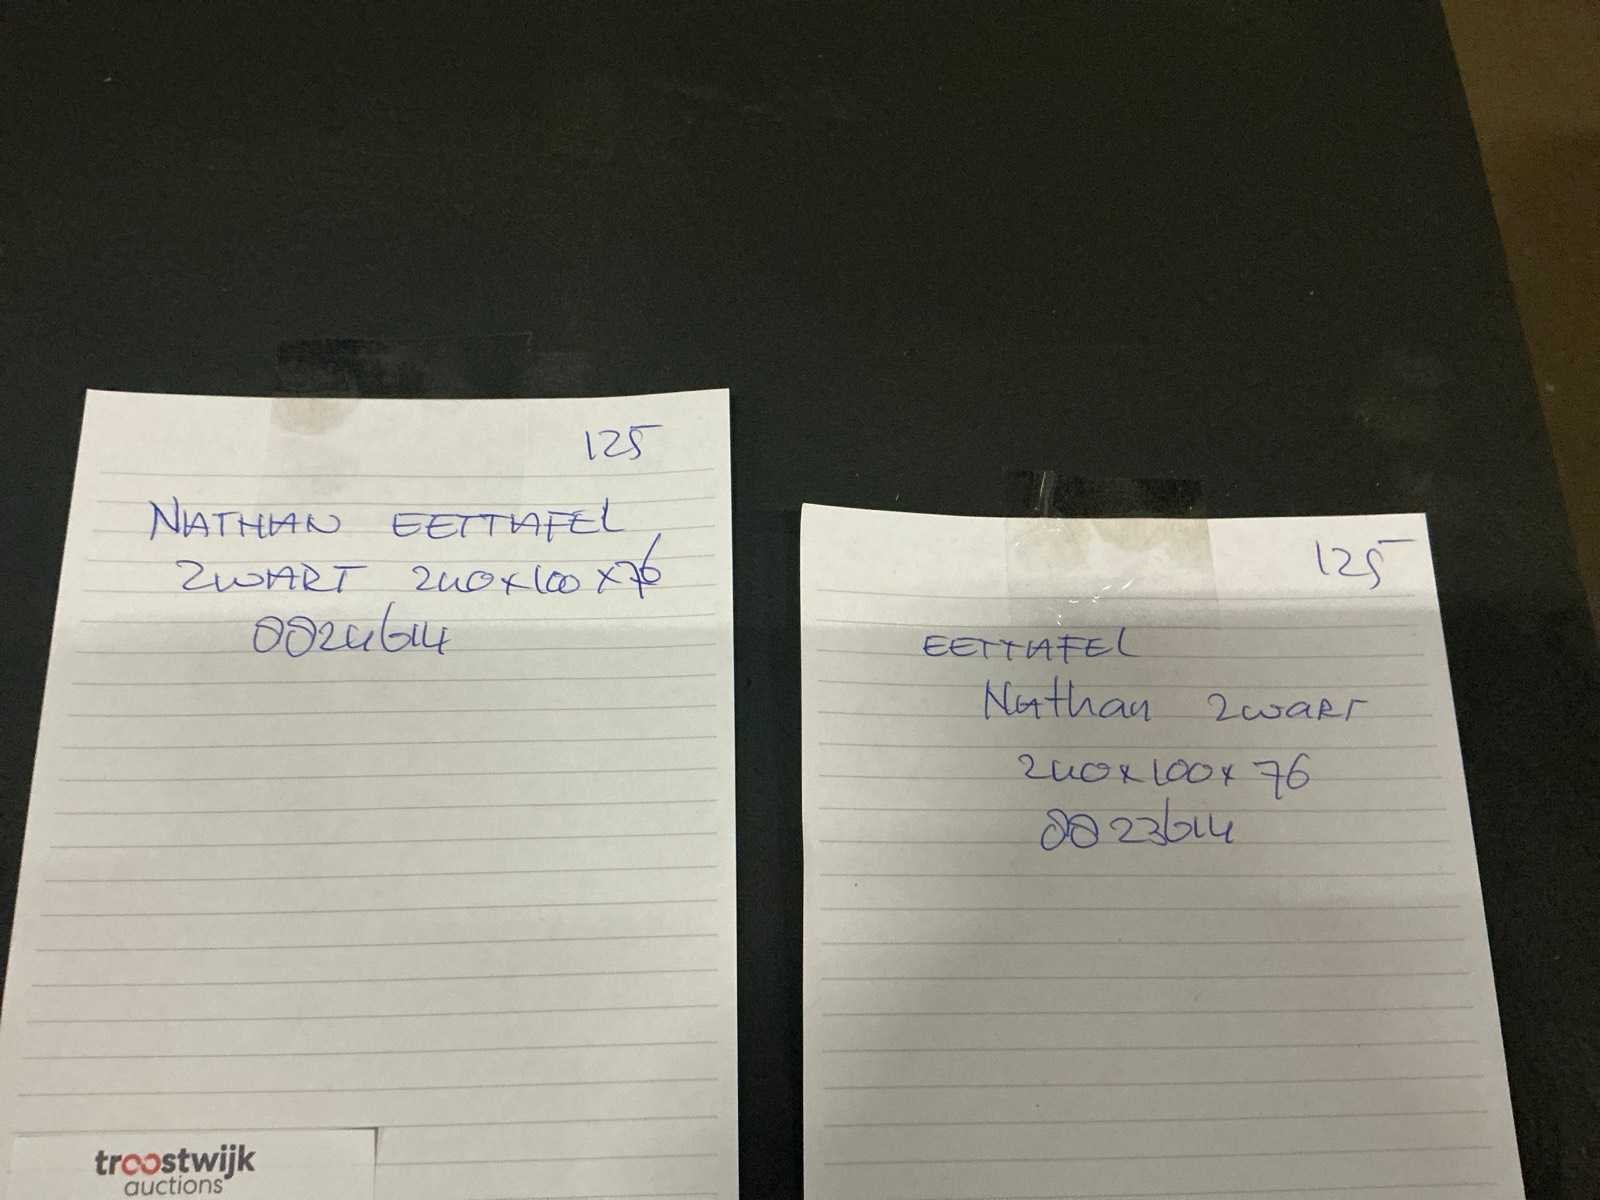 125
NATHAN EETTAFEL
ZWART 240x100x76
0024614
troostwijk
auctions
125
EETTAFEL
Nathan zwart
240x100x76
0023614